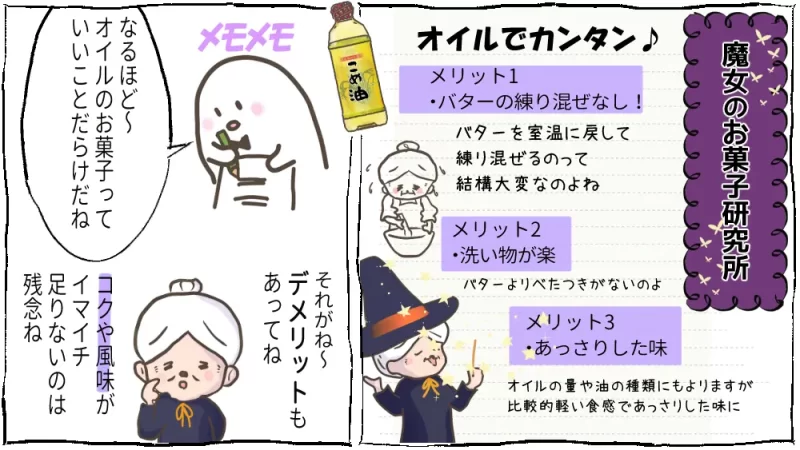 魔女のお菓子研究所
オイルでカンタン♪
メリット1
・バターの練り混ぜなし!
バターを室温に戻して
練り混ぜるのって
結構大変なのよね
メリット2
・洗い物が楽
バターよりべたつきがないのよ
メリット3
・あっさりした味
オイルの量や油の種類にもよりますが
比較的軽い食感であっさりした味に
こめ油
メモメモ
なるほど～
オイルのお菓子って
いいことだらけだね
それがね～
デメリットも
あってね
コクや風味が
イマイチ
足りないのは
残念ね